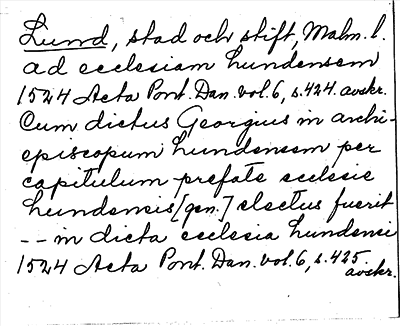 Lund, stad och stift, Malm. l.
ad ecclesiam Lundensem
1524 Acta Pont. Dan. vol. 6, s. 424. avskr.
Cum dictus Georgius in archi-
episcopum Lundensem per
capitulum prefate ecclesie
Lundensis [gen.] electus fuerit
-- in dicta ecclesia Lundensi
1524 Acta Pont. Dan. vol. 6, s. 425.
avskr.